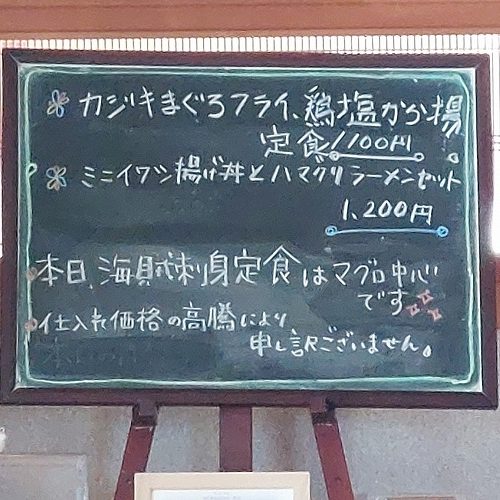 カジキまぐろフライ、鶏塩から揚
定食1100円
ミニイワシ揚げ丼とハマグリラーメンセット
1,200円
本日、海賊刺身定食はマグロ中心
です
仕入れ価格の高騰により
申し訳ございません。